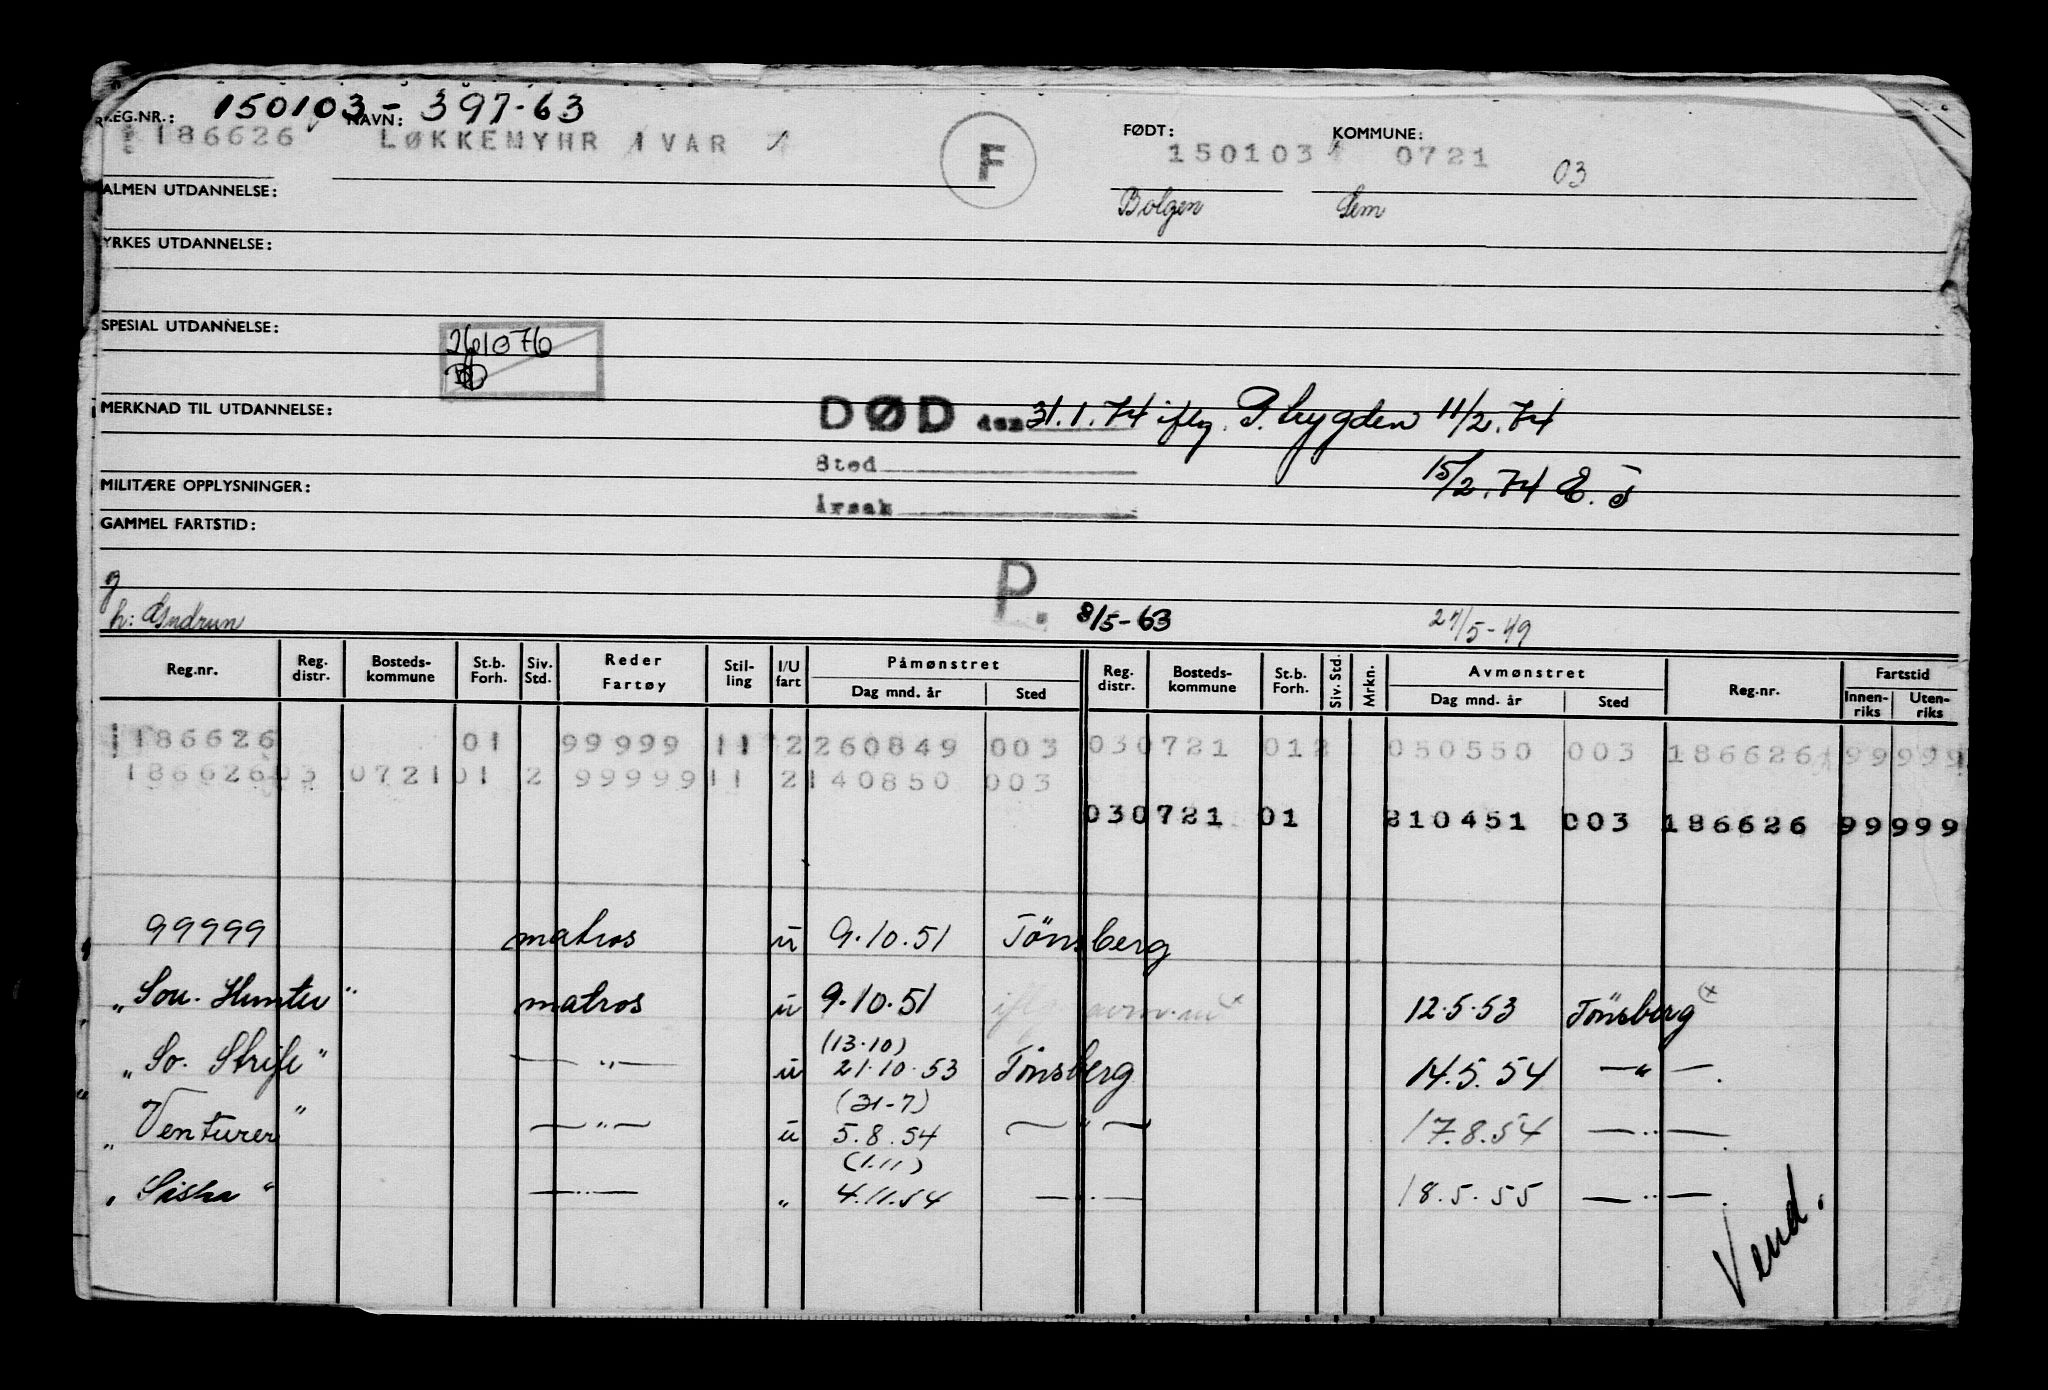 REG.NR.: 150103- NAVN: 397-63
186626 LØKKEMYHR IVAR F FØDT: 150103 KOMMUNE: 0721 03
ALMEN UTDANNELSE: Bolgen Sem
YRKES UTDANNELSE:
SPESIAL UTDANNELSE:
261076
MERKNAD TIL UTDANNELSE: DØD den 31.1.74 iflg. P. trygden 11/2.74
Sted 15/2.74
MILITÆRE OPPLYSNINGER:
Årsak
GAMMEL FARTSTID:
g
h: Gudrun P. 8/5-63 27/5-49
Reg.nr. Reg. distr. Bosteds-kommune St.b. Forh. Siv. Std. Reder Fartøy Stil-ling I/U fart Påmønstret Dag mnd. år Sted Reg. distr. Bosteds-kommune St.b. Forh. Siv. Std. Mrkn. Avmønstret Dag mnd. år Sted Reg.nr. Fartstid Innen-riks Uten-riks
186626 01 99999 11 2 260849 003 03 0721 012 050550 003 186626 99 999
186626 03 0721 01 2 99999 11 2 140850 003
03 0721 01 210451 003 186626 99 999
99999 matros u 9.10.51 Tönsberg
"Sou. Hunter" matros u 9.10.51 12.5.53 Tönsberg x
(13.10)
"So. Strife" — " — u 21.10.53 Tönsberg 14.5.54 — " —.
(31-7)
"Venturer" — " — u 5.8.54 — " — 17.8.54 — " —.
(1.11)
"Siska" — " — " 4.11.54 — " — 18.5.55 — " —.
Vend.